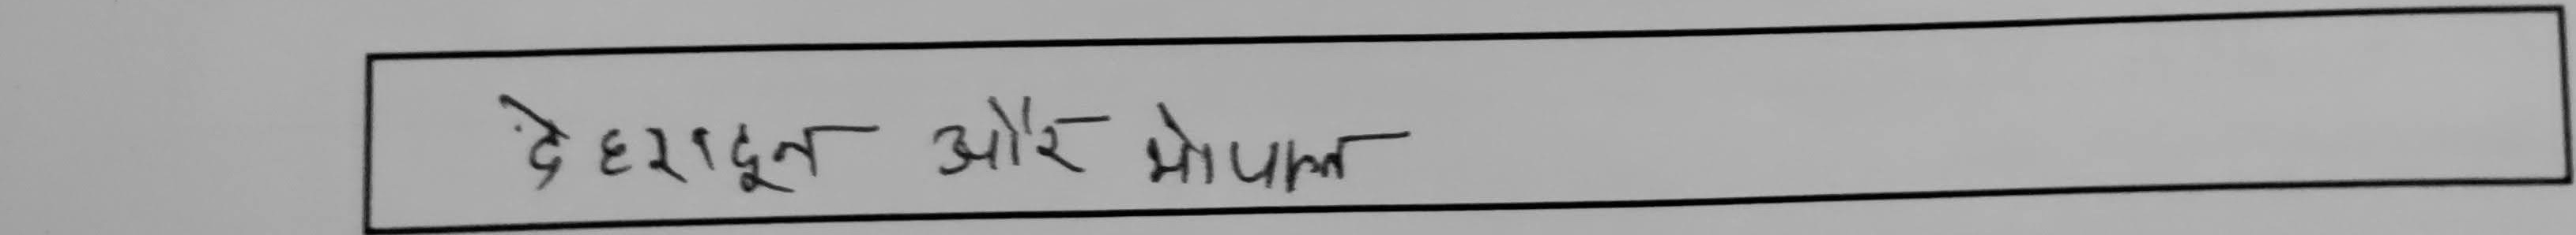 देहरादून और भोपाल